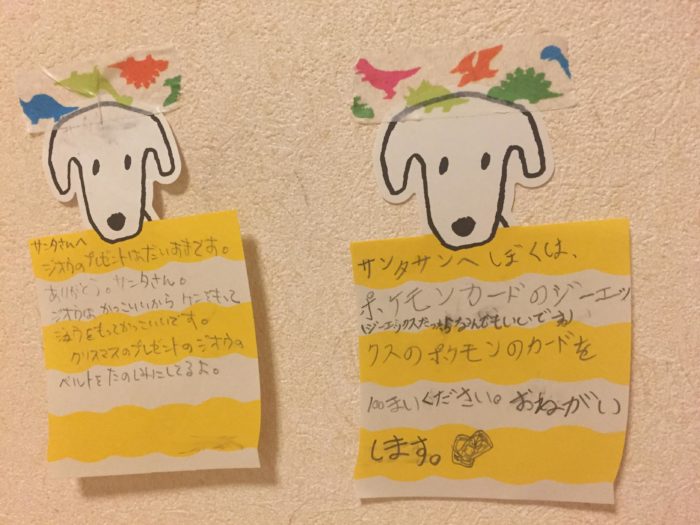 サンタさんへ
ジオウのプレゼントはだいおきです。
ありがとう。サンタさん。
ジオウはかっこいいから ケンをもって
ジュウをもってかっこいいです。
クリスマスのプレゼントのジオウの
ベルトをたのしみにしてるよ。
サンタサンへ ぼくは、
ポケモンカードのジーエッ
(ジーエックスだったらなんでもいいです)
クスのポケモンのカードを
100まいください。おねがい
します。